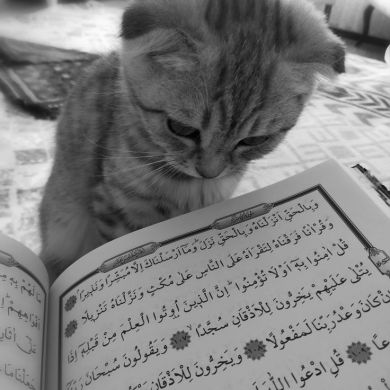 وَبِالْحَقِّ اَنْزَلْنَاهُ وَبِالْحَقِّ نَزَلَ وَمَا اَرْسَلْنَاكَ اِلَّا مُبَشِّرًا وَنَذِيرًا
وَقُرْاٰنًا فَرَقْنَاهُ لِتَقْرَاَهُ عَلَى النَّاسِ عَلٰى مُكْثٍ وَنَزَّلْنَاهُ تَنْزِيلًا
قُلْ اٰمِنُوا بِهِ اَوْ لَا تُؤْمِنُوا اِنَّ الَّذِينَ اُوتُوا الْعِلْمَ مِنْ قَبْلِهِ اِذَا
يُتْلٰى عَلَيْهِمْ يَخِرُّونَ لِلْاَذْقَانِ سُجَّدًا وَيَقُولُونَ سُبْحَانَ
كَانَ وَعْدُ رَبِّنَا لَمَفْعُولًا وَيَخِرُّونَ لِلْاَذْقَانِ
قُلِ ادْعُوا